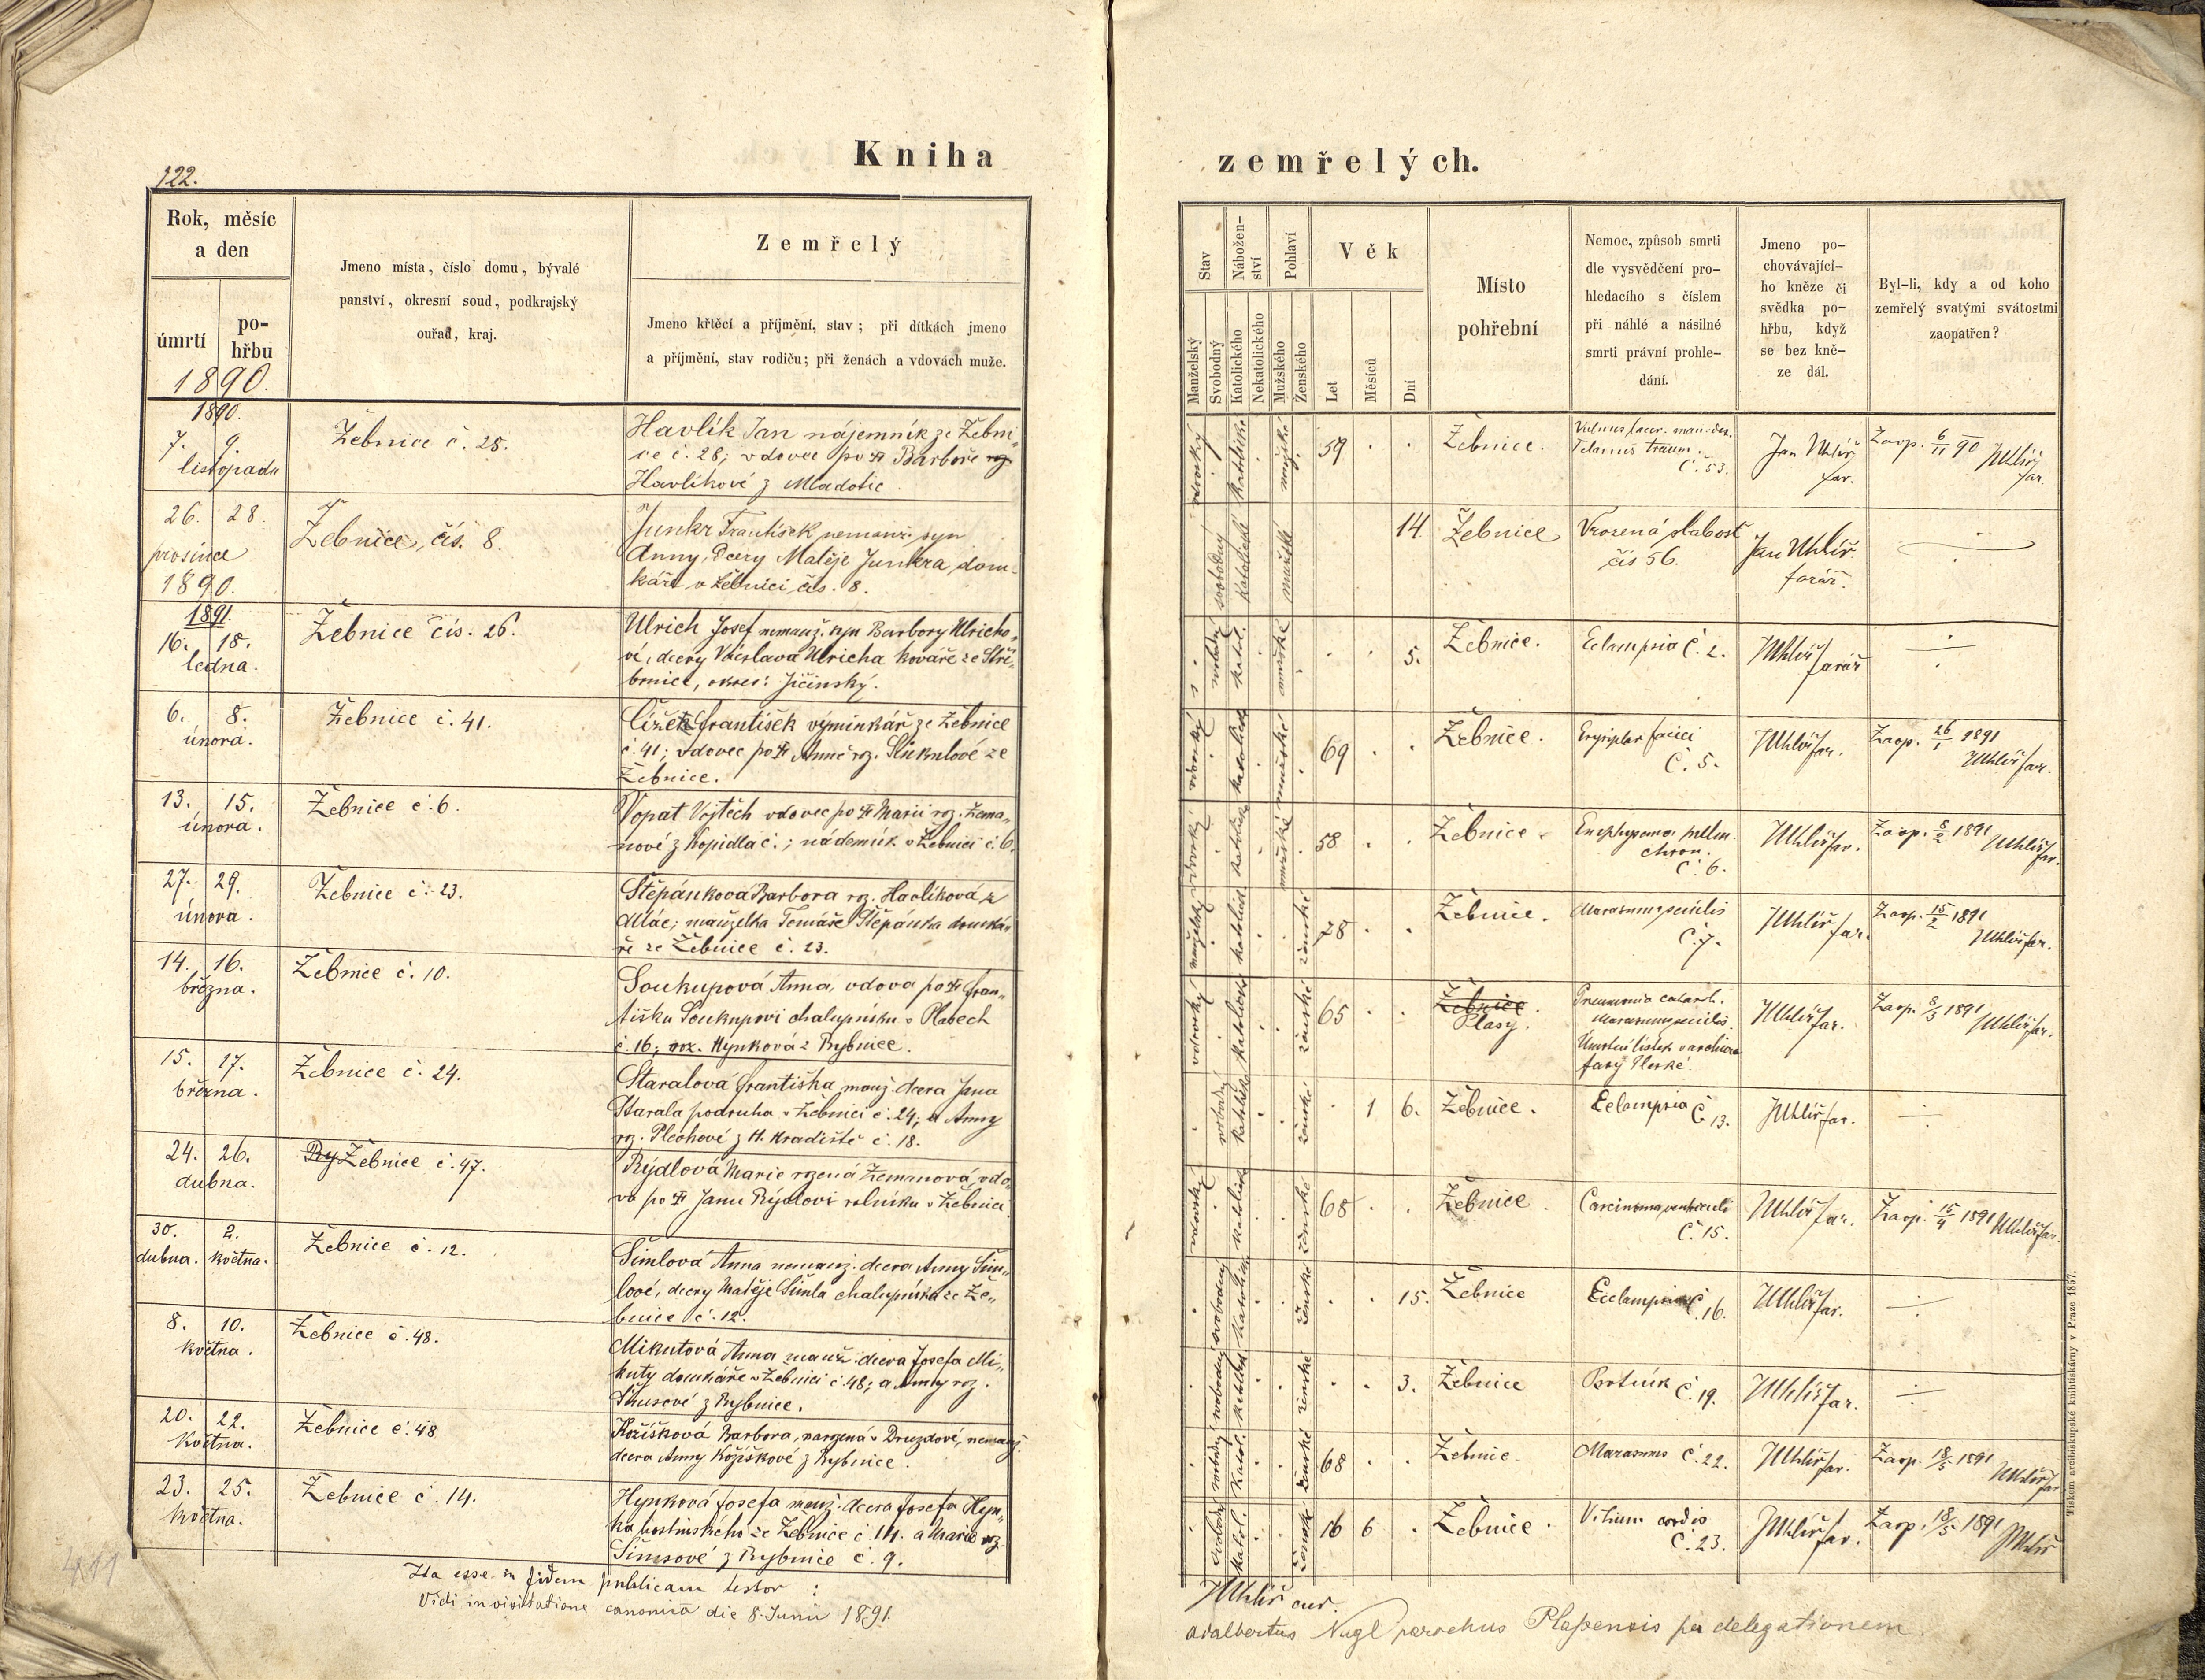 122.
Kniha
zemřelých.
Rok, měsíc
a den
úmrtí
po-
hřbu
1890.
Jmeno místa, číslo domu, bývalé
panství, okresní soud, podkrajský
ouřad, kraj.
Zemřelý
Jmeno křtěcí a příjmění, stav; při dítkách jmeno
a příjmění, stav rodičů; při ženách a vdovách muže.
Stav
Manželský
Svobodný
Nábožen-
ství
Katolického
Nekatolického
Pohlaví
Mužského
Ženského
Věk
Let
Měsíců
Dní
Místo
pohřební
Nemoc, způsob smrti
dle vysvědčení pro-
hledacího s číslem
při náhlé a násilné
smrti právní prohle-
dání.
Jmeno po-
chovávající-
ho kněze či
svědka po-
hřbu, když
se bez kně-
ze dál.
Byl-li, kdy a od koho
zemřelý svatými svátostmi
zaopatřen?
1890.
7. 9.
listopadu
Žebnice č. 28.
Havlík Jan nájemník ze Žebni„
ce č. 28; vdovec po Barboře
Havlíkové z Mladotic
vdovský katolické mužské
59 . .
Žebnice.
Vulnus lacer. man. dex.
Tetanus traum.
Č. 53.
Jan Uhlíř
far.
Zaop. 6/11 90 JUhlíř
far.
26. 28.
prosince
1890.
Žebnice, čís. 8.
Junkr František nemanž. syn
Anny, dcery Matěje Junkra, dom-
káře v Žebnici čís. 8.
svobodný katolické mužské
14
Žebnice
Vrozená slabost
čís 56.
Jan Uhlíř
farář.
1891.
16. 18.
ledna.
Žebnice čís. 26.
Ulrich Josef nemanž. syn Barbory Ulricho„
vé, dcery Václava Ulricha kováře ze Stří„
brnice, okres: Jičínský.
katol. mužské
. . 5.
Žebnice.
Eclampsia č. 2.
JUhlíř farář
6. 8.
února.
Žebnice č. 41.
Čížek František výminkář ze Žebnice
č. 41; vdovec po Anně roz. ze
Žebnice.
vdovský katolické mužské
69 . .
Žebnice.
Č. 5.
JUhlíř far.
Zaop. 26/1 1891
JUhlíř far.
13. 15.
února.
Žebnice č. 6.
Vopat Vojtěch vdovec po Marii roz. Zema„
nové z Kopidla č. ; nádeník v Žebnici č. 6.
vdovský katolické mužské
58 . .
Žebnice
Emphysema pulm.
chron.
Č. 6.
JUhlíř far.
Zaop. 8/2 1891
JUhlíř far.
27. 29.
února.
Žebnice č. 23.
Štěpánková Barbora roz. Havlíková z
manželka Tomáše Štěpánka domká„
ře ze Žebnice č. 23.
manželský katolické ženské
78 . .
Žebnice.
Marasmus senilis
Č. 7.
JUhlíř far.
Zaop. 15/2 1891
JUhlíř far.
14. 16.
března.
Žebnice č. 10.
Soukupová Anna, vdova po Fran„
tišku Soukupovi chalupníku v Plasech
č. 16; roz. Hynková z Rybnice.
vdovský katolické ženské
65 . .
Žebnice
Plasy.
Pneumonia catarrh.
Marasmus senilis.
Úmrtní lístek v archivu
fary Plaské.
JUhlíř far.
Zaop. 8/3 1891
JUhlíř far.
15. 17.
března.
Žebnice č. 24.
Staralová Františka manž. dcera Jana
Starala podruha v Žebnici č. 24; a Anny
roz. z H. Hradiště č. 18.
svobodný katolické ženské
. 1 6.
Žebnice.
Eclampsia č. 13.
JUhlíř far.
24. 26.
dubna.
Ry Žebnice č. 47.
Rýdlová Marie rozená Zemanová, vdo„
va po Janu Rýdlovi rolníku v Žebnici
vdovský katolické ženské
68 . .
Žebnice
Carcinoma ventriculi
Č. 15.
JUhlíř far.
Zaop. 15/4 1891 JUhlíř far.
30. 2.
dubna. května.
Žebnice č. 12.
Šimlová Anna nemanž. dcera Anny Šim„
lové, dcery Matěje Šimla chalupníka ze Že„
bnice č. 12.
svobodný katolické ženské
. . 15.
Žebnice
Eclampsia č. 16.
JUhlíř far.
8. 10.
května.
Žebnice č. 48.
Mikutová Anna manž. dcera Josefa Mi„
kuty domkáře v Žebnici č. 48; a Anny roz.
z Rybnice.
svobodný ženské
. . 3.
Žebnice
Psotník č. 19.
JUhlíř far.
20. 22.
května.
Žebnice č. 48
Kožíšková Barbora, narozená v Druzdové, nemanž.
dcera Anny Kožíškové z Rybnice.
svobodný katol. ženské
68 . .
Žebnic
Marasmus č. 22.
JUhlíř far.
Zaop. 18/5 1891
JUhlíř far.
23. 25.
května.
Žebnice č. 14.
Hynková Josefa manž. dcera Josefa Hyn„
ka hostinského ze Žebnice č. 14. a Marie roz.
Šimsové z Rybnice č. 9.
svobodný katol. ženské
16 6 .
Žebnice.
Vitium cordis
Č. 23.
JUhlíř far.
Zaop. 18/5 1891
JUhlíř
411
Ita esse in fidem publicam testor :
JUhlíř cur.
Vidi in visitatione canonica die 8. Junii 1891.
Adalbertus Nagl parochus Plassensis per delegationem.
Tiskem arcibiskupské knihtiskárny v Praze 1857.